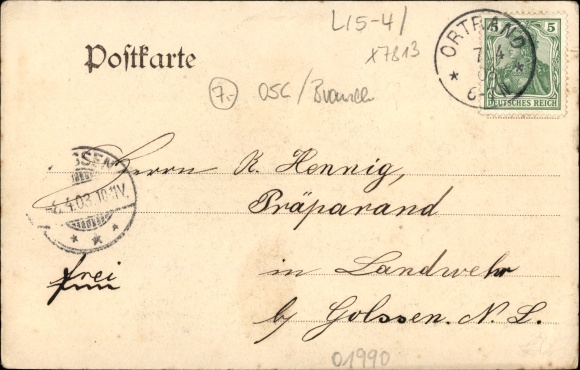 L15-4/
X7813
Postkarte
7.- OSC/
ORTRAND
7 4
5
DEUTSCHES REICH
SSEN
4.03.10-11V.
Herrn R. Hennig,
Präparand
frei
in Landwehr
b/ Golssen. N. L.
01990